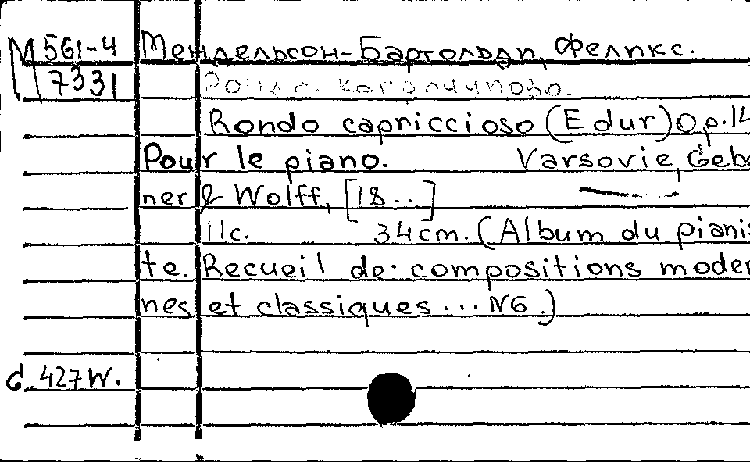 М 561-4 Мендельсон-Бартольди, Феликс.
7331 Рондо каприччиозо.
Rondo capriccioso (E dur) Op. 14
Pour le piano. Varsovie, Geb
ner & Wolff, [18..]
11c. 34cm. (Album du pianis
te. Recueil de compositions moder
nes et classiques... N6.)
G. 427 W.